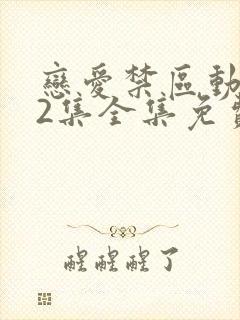 戀愛禁區動
2集全集免費
醒醒醒了